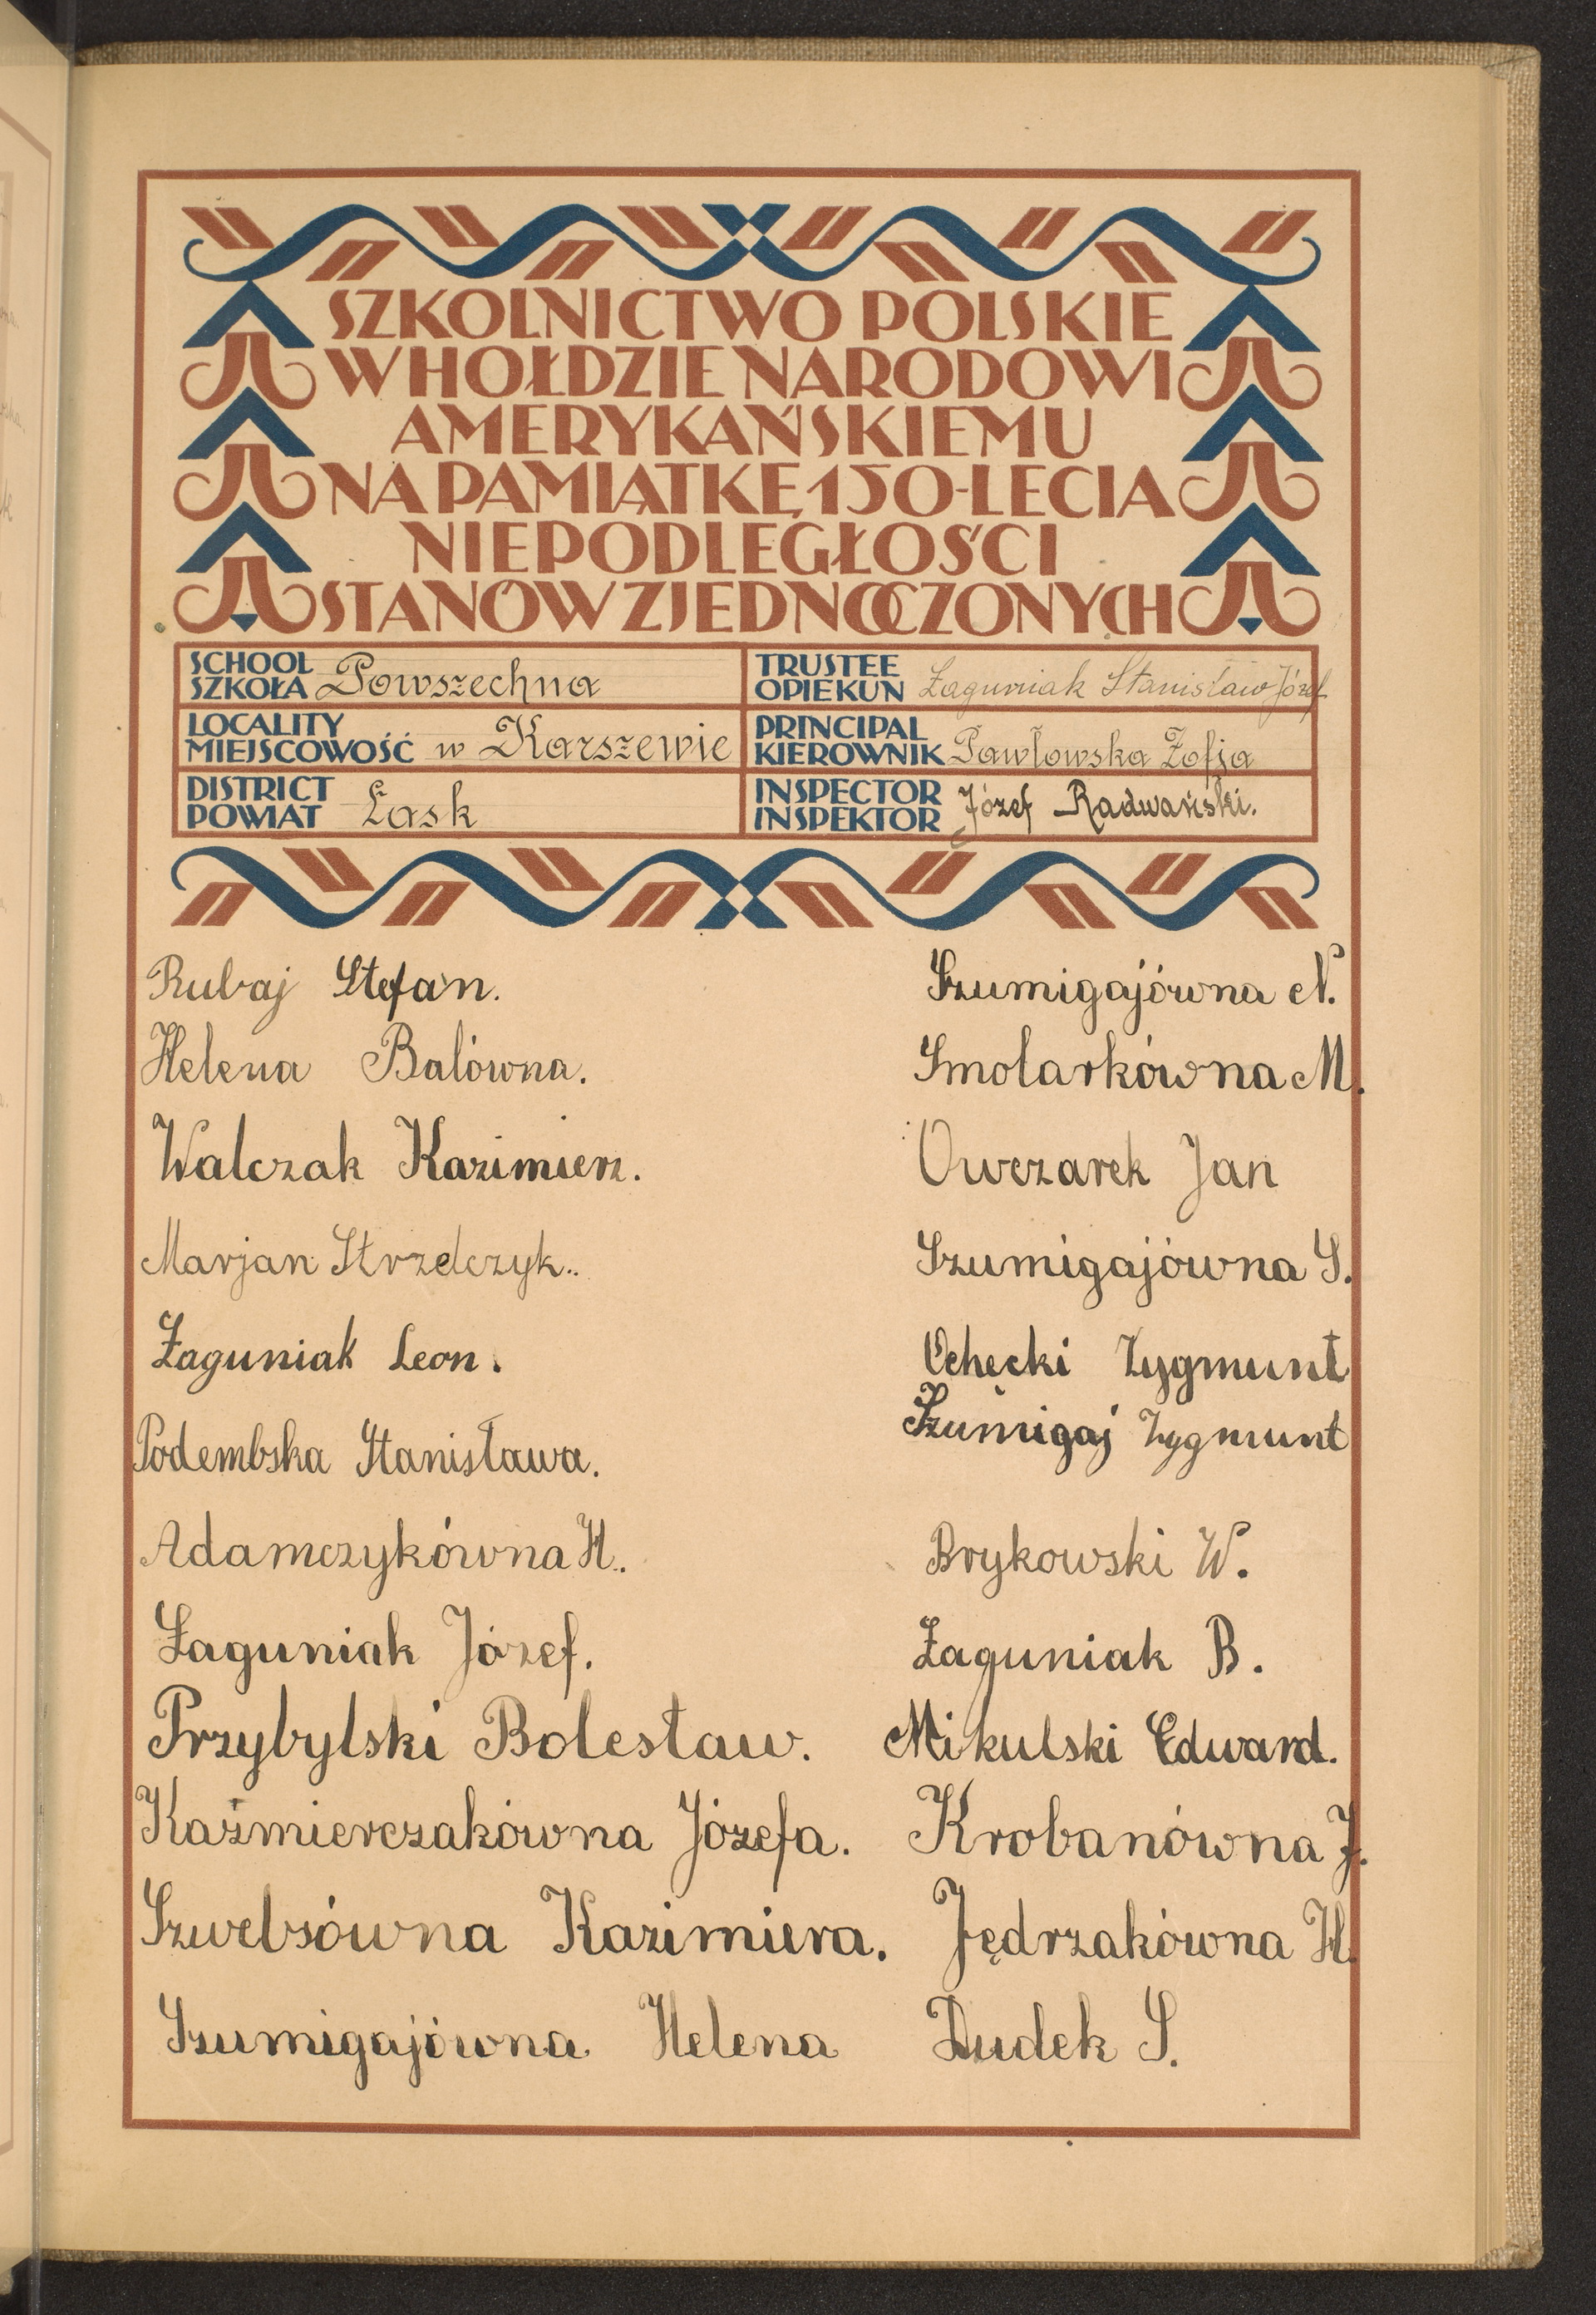 SZKOLNICTWO POLSKIE
W HOŁDZIE NARODOWI
AMERYKAŃSKIEMU
NA PAMIĄTKĘ 150-LECIA
NIEPODLEGŁOŚCI
STANÓW ZJEDNOCZONYCH
SCHOOL
SZKOŁA Powszechna
LOCALITY
MIEJSCOWOŚĆ w Karszewie
DISTRICT
POWIAT Łask
TRUSTEE
OPIEKUN Łaguniak Stanisław Józef
PRINCIPAL
KIEROWNIK Pawłowska Zofja
INSPECTOR
INSPEKTOR Józef Radwański.
Rubaj Stefan.
Helena Balówna.
Walczak Kazimierz.
Marjan Strzelczyk..
Łaguniak Leon.
Podembska Stanisława.
Adamczykówna H..
Łaguniak Józef.
Przybylski Bolesław.
Kaźmierczakówna Józefa.
Szwebsówna Kazimiera.
Szumigajówna Helena
Szumigajówna N.
Smolarkówna M.
Owczarek Jan
Szumigajówna S.
Ochęcki Zygmunt
Szumigaj Zygmunt
Brykowski W.
Łaguniak B.
Mikulski Edward.
Krobanówna J.
Jędrzakówna H.
Dudek S.